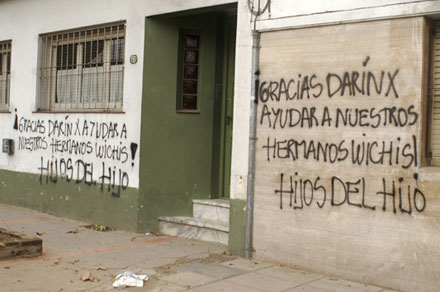 ¡GRACIAS DARÍN X AYUDAR A
NUESTROS HERMANOS WICHIS!
HIJOS DEL HIJO
¡GRACIAS DARÍN X
AYUDAR A NUESTROS
HERMANOS WICHIS!
HIJOS DEL HIJO